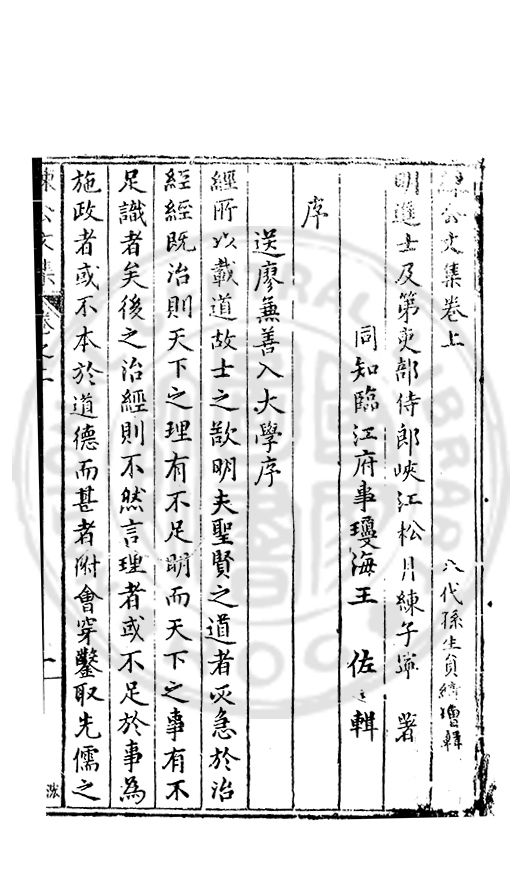 練公文集卷上
八代孫生員綺增輯
明進士及第吏部侍郎峽江松月練子寧 著
同知臨江府事瓊海王 佐 輯
序
送廖兼善入大學序
經所以載道故士之欲明夫聖賢之道者必急於治
經經既治則天下之理有不足明而天下之事有不
足識者矣後之治經則不然言理者或不足於事為
施政者或不本於道德而甚者附會穿鑿取先儒之
練公文集 卷之上 一